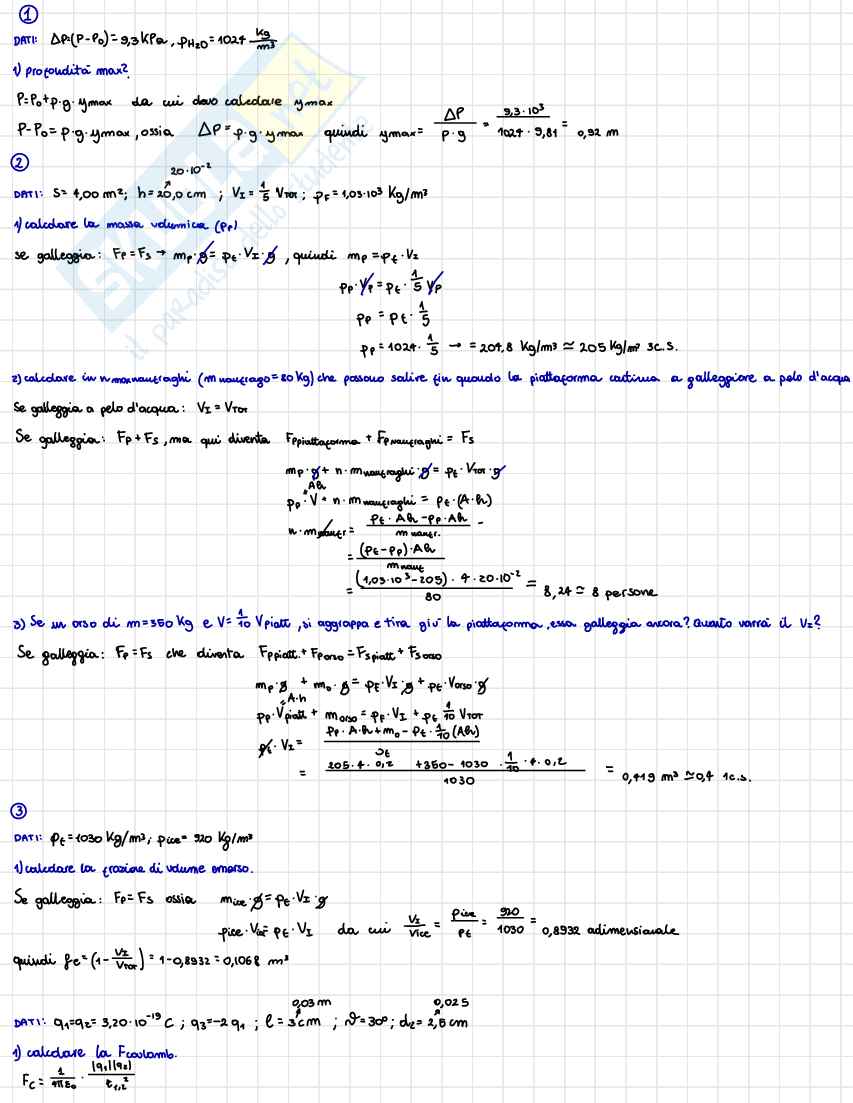 ①
DATI: ΔP=(P-P₀)=9,3KPa, ρH₂O=1024 Kg/m³
1) profondità max?
P=P₀+ρ·g·ymax da cui devo calcolare ymax
P-P₀=ρ·g·ymax, ossia ΔP=ρ·g·ymax quindi ymax= ΔP/ρ·g = 9,3·10³/1024·9,81 = 0,92 m
②
20·10⁻²
DATI: S=4,00 m²; h=20,0 cm ; VI=1/5 VTOT; ρF=1,03·10³ Kg/m³
1) calcolare la massa volumica (ρP)
se galleggia: FP=FS → mP·g=ρf·VI·g, quindi mP=ρf·VI
ρP·VP=ρf·1/5 VP
ρP=ρf·1/5
ρP=1024·1/5 → =204,8 Kg/m³≃205Kg/m³ 3C.S.
2) calcolare in n maxnaufraghi (m naufrago=80Kg) che possono salire fin quando la piattaforma continua a galleggiare a pelo d'acqua
Se galleggia a pelo d'acqua: VI=VTOT
Se galleggia: FP+FS, ma qui diventa FPpiattaforma+FPnaufraghi=FS
mP·g+n·mnaufraghi·g=ρf·VTOT·g
Ah
ρP·V+n·mnaufraghi=ρf·(A·h)
n·mnaufr= ρf·Ah-ρP·Ah/mnaufr. =
= (ρf-ρP)·Ah/mnauf
= (1,03·10³-205)·4·20·10⁻²/80 = 8,24≃8 persone
3) Se un orso di m=350Kg e V=1/10 Vpiatt, si aggrappa e tira giù la piattaforma, essa galleggia ancora? Quanto varrà il VI?
Se galleggia: FP=FS che diventa FPpiatt.+FPorso=FSpiatt+FSorso
mP·g+mo·g=ρf·VI·g+ρf·Vorso·g
=A·h
ρP·Vpiatt+morso=ρF·VI+ρf 1/10 VTOT
ρf·VI= ρP·A·h+mo-ρf·1/10(Ah)/ρf
= 205·4·0,2 +350-1030·1/10·4·0,2/1030 = 0,419 m³≃0,4 1c.s.
③
DATI: ρf=1030Kg/m³; ρice=920Kg/m³
1) calcolare la frazione di volume emerso.
Se galleggia: FP=FS ossia mice·g=ρf·VI·g
ρice·Vice=ρf·VI da cui VI/Vice=ρice/ρf=920/1030=0,8932 adimensionale
quindi fe=(1-VI/VTOT)=1-0,8932=0,1068 m³
0,03m 0,025
DATI: q₁=q₂=3,20·10⁻¹⁹C ; q₃=-2q₁ ; ℓ=3cm ; ϑ=30°; d₂=2,5cm
1) calcolare la Fcoulomb.
FC=1/4πε₀·|q₁||q₂|/r₁,₂²